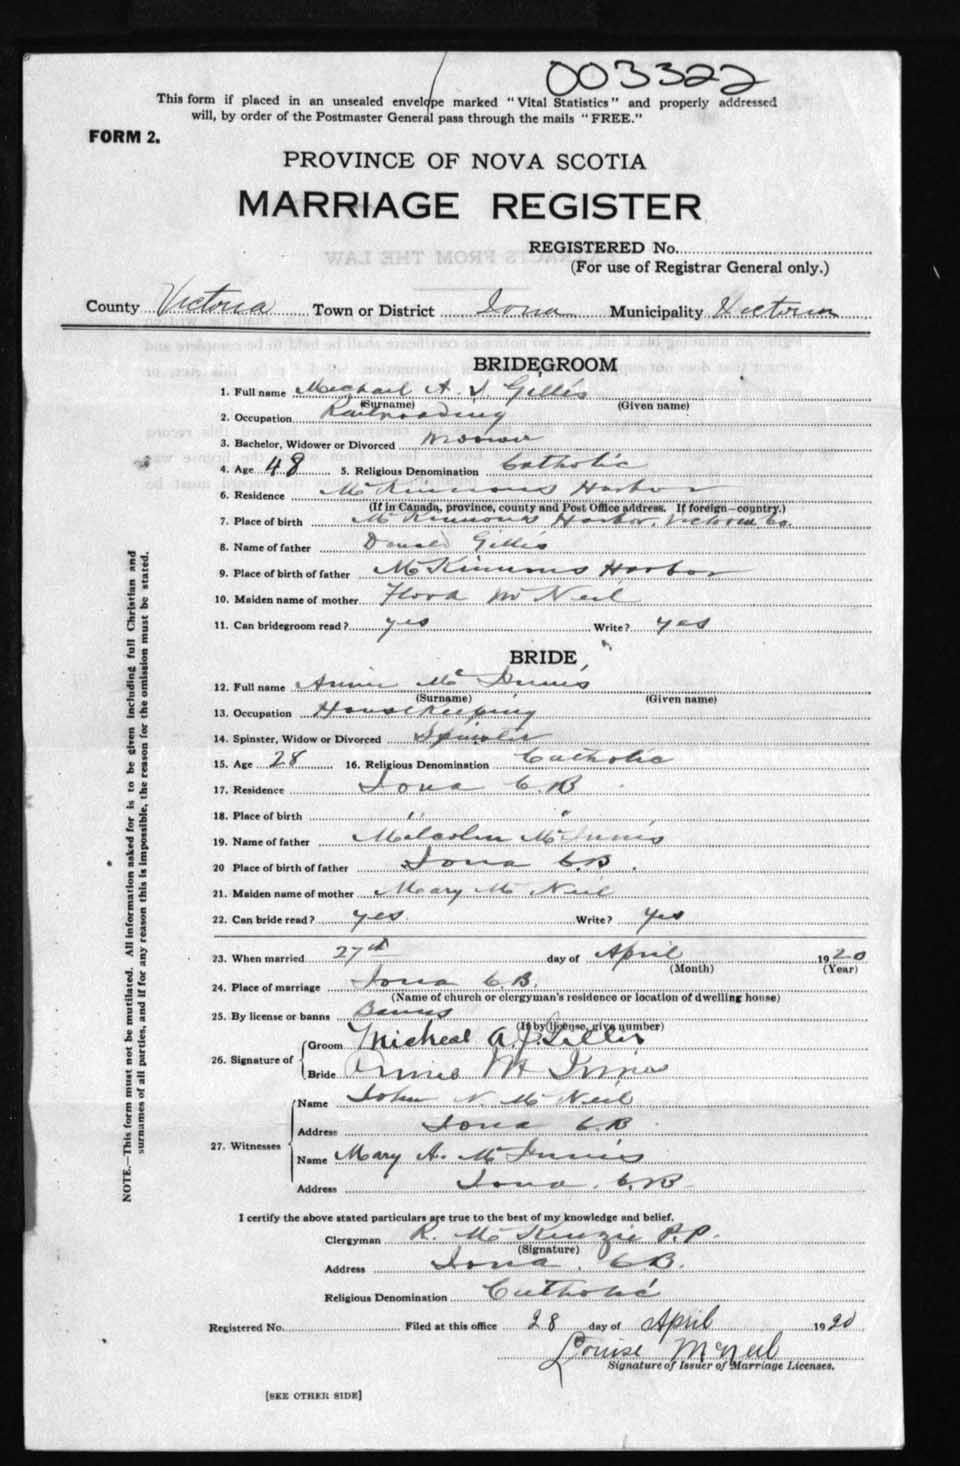 003322
This form if placed in an unsealed envelope marked "Vital Statistics" and properly addressed
will, by order of the Postmaster General pass through the mails "FREE."
FORM 2.
PROVINCE OF NOVA SCOTIA
MARRIAGE REGISTER
REGISTERED No.
(For use of Registrar General only.)
County Victoria Town or District Iona Municipality Victoria
BRIDEGROOM
1. Full name Michael A. J. Gillis
(Surname) (Given name)
2. Occupation Railroading
3. Bachelor, Widower or Divorced Widower
4. Age 48 5. Religious Denomination Catholic
6. Residence McKinnons Harbor
(If in Canada, province, county and Post Office address. If foreign—country.)
7. Place of birth McKinnons Harbor, Victoria Co.
8. Name of father Donald Gillis
9. Place of birth of father McKinnons Harbor
10. Maiden name of mother Flora McNeil
11. Can bridegroom read? yes Write? yes
BRIDE
12. Full name Annie McInnis
(Surname) (Given name)
13. Occupation Housekeeping
14. Spinster, Widow or Divorced Spinster
15. Age 28 16. Religious Denomination Catholic
17. Residence Iona C.B.
18. Place of birth " "
19. Name of father Malcolm McInnis
20 Place of birth of father Iona C.B.
21. Maiden name of mother Mary McNeil
22. Can bride read? yes Write? yes
23. When married 27th day of April 1920
(Month) (Year)
24. Place of marriage Iona C.B.
(Name of church or clergyman's residence or location of dwelling house)
25. By license or banns Banns
(If by license, give number)
26. Signature of
Groom Micheal A. J. Gillis
Bride Annie Mc Innis
27. Witnesses
Name John N. McNeil
Address Iona C.B.
Name Mary A. McInnis
Address Iona, C.B.
I certify the above stated particulars are true to the best of my knowledge and belief.
Clergyman R. McKenzie P.P.
(Signature)
Address Iona, C.B.
Religious Denomination Catholic
Registered No. Filed at this office 28 day of April 1920
Louise McNeil
Signature of Issuer of Marriage Licenses.
[SEE OTHER SIDE]
NOTE.—This form must not be mutilated. All information asked for is to be given including full Christian and
surnames of all parties, and if for any reason this is impossible, the reason for the omission must be stated.